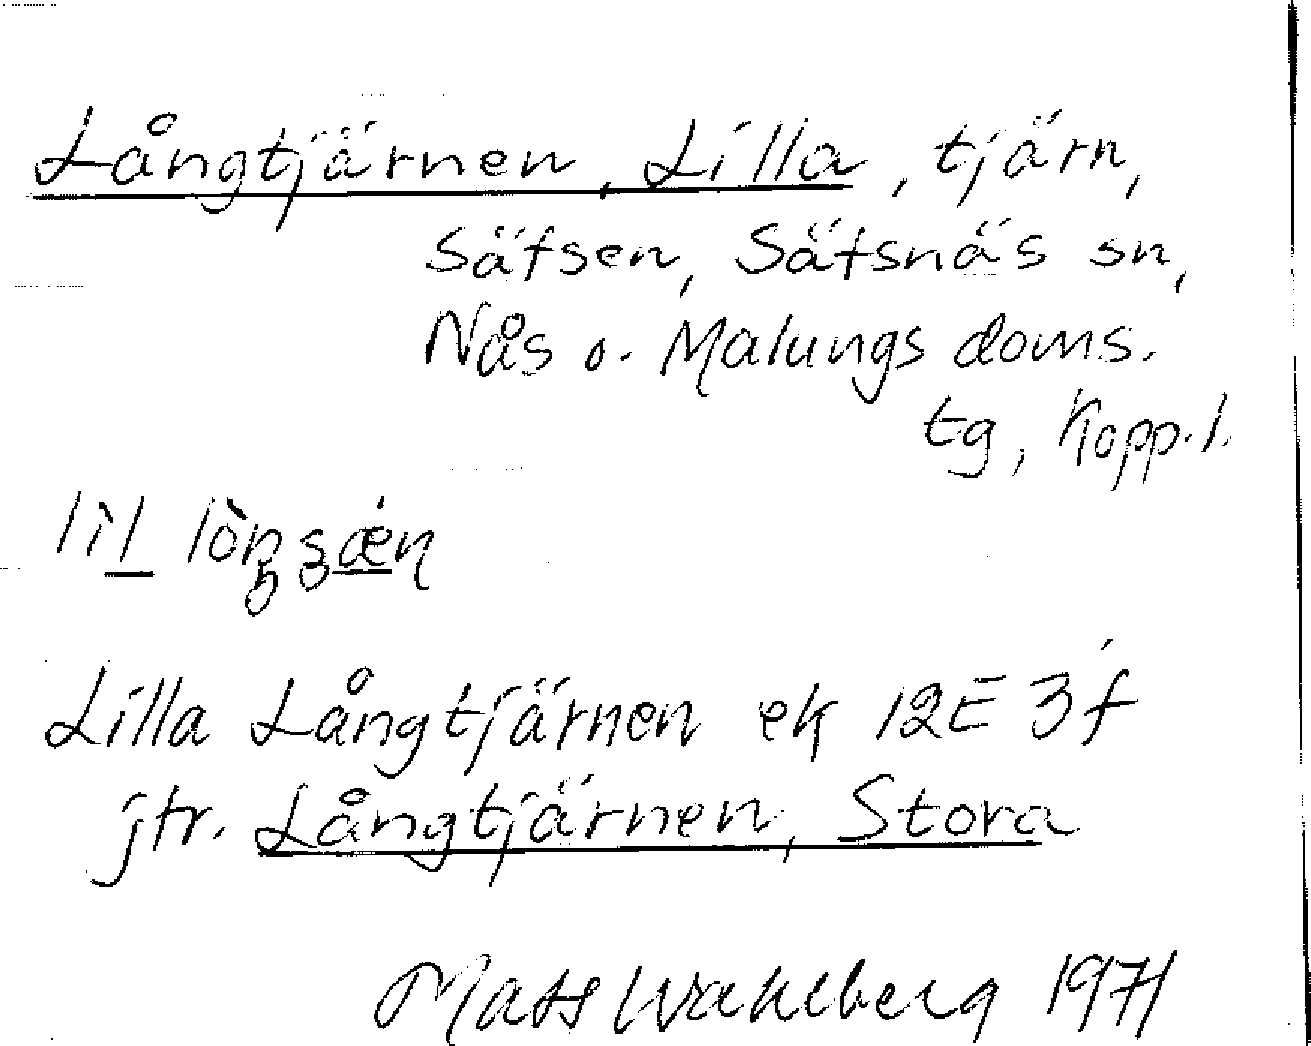 Långtjärnen, Lilla, tjärn,
Säfsen, Säfsnäs sn,
Nås o. Malungs doms.
tg, Kopp. l.
Lilla Långtjärnen ek 12E 3f
jfr. Långtjärnen, Stora
Mats Wahlberg 1971